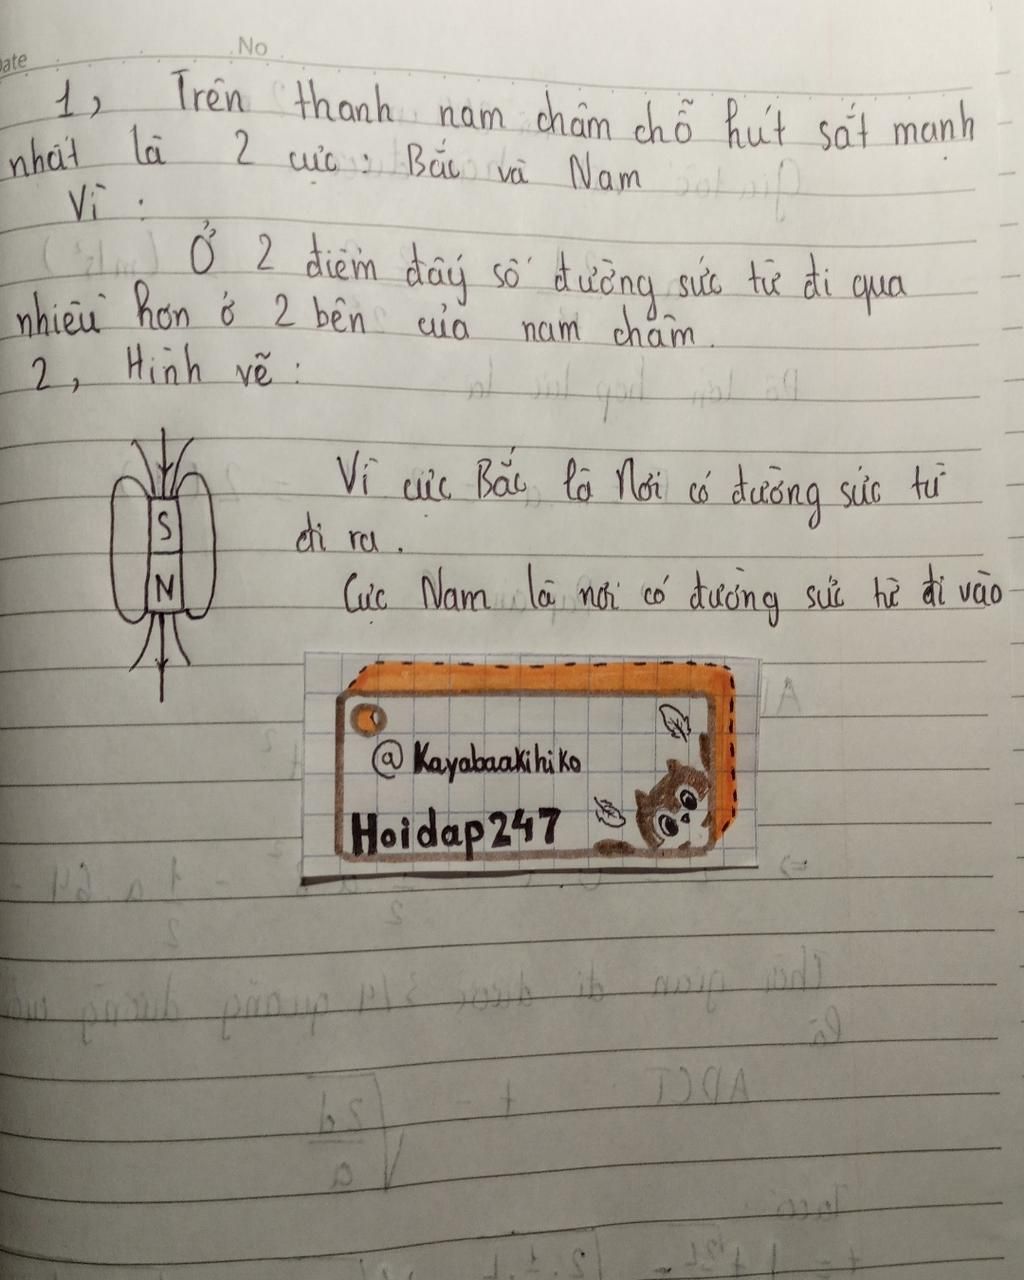 Date
No
1, Trên thanh nam châm chỗ hút sắt mạnh
nhất là 2 cực: Bắc và Nam
Vì:
Ở 2 điểm đấy số đường sức từ đi qua
nhiều hơn ở 2 bên của nam châm.
2, Hình vẽ:
Vì cực Bắc là Nơi có đường sức từ
đi ra.
S
N
Cực Nam là nơi có đường sức từ đi vào
@Kayabaakihiko
Hoidap247